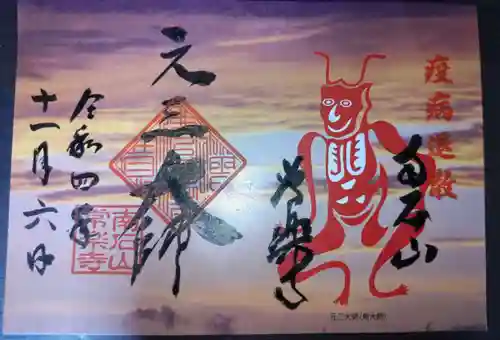 疫病退散
南石山
常楽寺
元三大師
南石山
常楽寺
令和四年
十一月六日
元三大師(角大師)